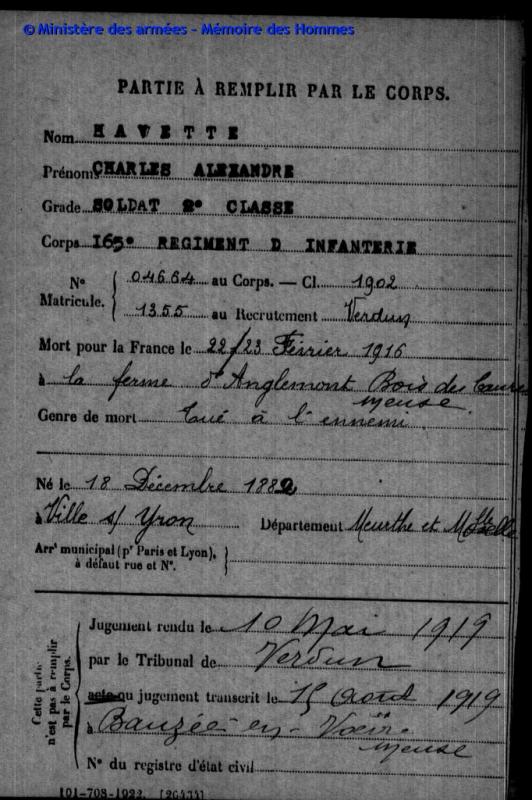 © Ministère des armées - Mémoire des Hommes
PARTIE À REMPLIR PAR LE CORPS.
Nom HAVETTE
Prénoms CHARLES ALEXANDRE
Grade SOLDAT 2e CLASSE
Corps 165e REGIMENT D INFANTERIE
N° Matricule. { 04664 au Corps. — Cl. 1902
1355 au Recrutement Verdun
Mort pour la France le 22/23 Février 1916
à la ferme d'Anglemont Bois des
Meuse
Genre de mort Tué à l'ennemi
Né le 18 Décembre 1882
à Ville s/ Yron Département Meurthe et Moselle
Arrt municipal (pr Paris et Lyon), à défaut rue et N°. }
Cette partie n'est pas à remplir par le Corps.
Jugement rendu le 10 Mai 1919
par le Tribunal de Verdun
acte ou jugement transcrit le 15 Août 1919
à Bauzée-en-
Meuse
N° du registre d'état civil
101-708-1922. [26434]